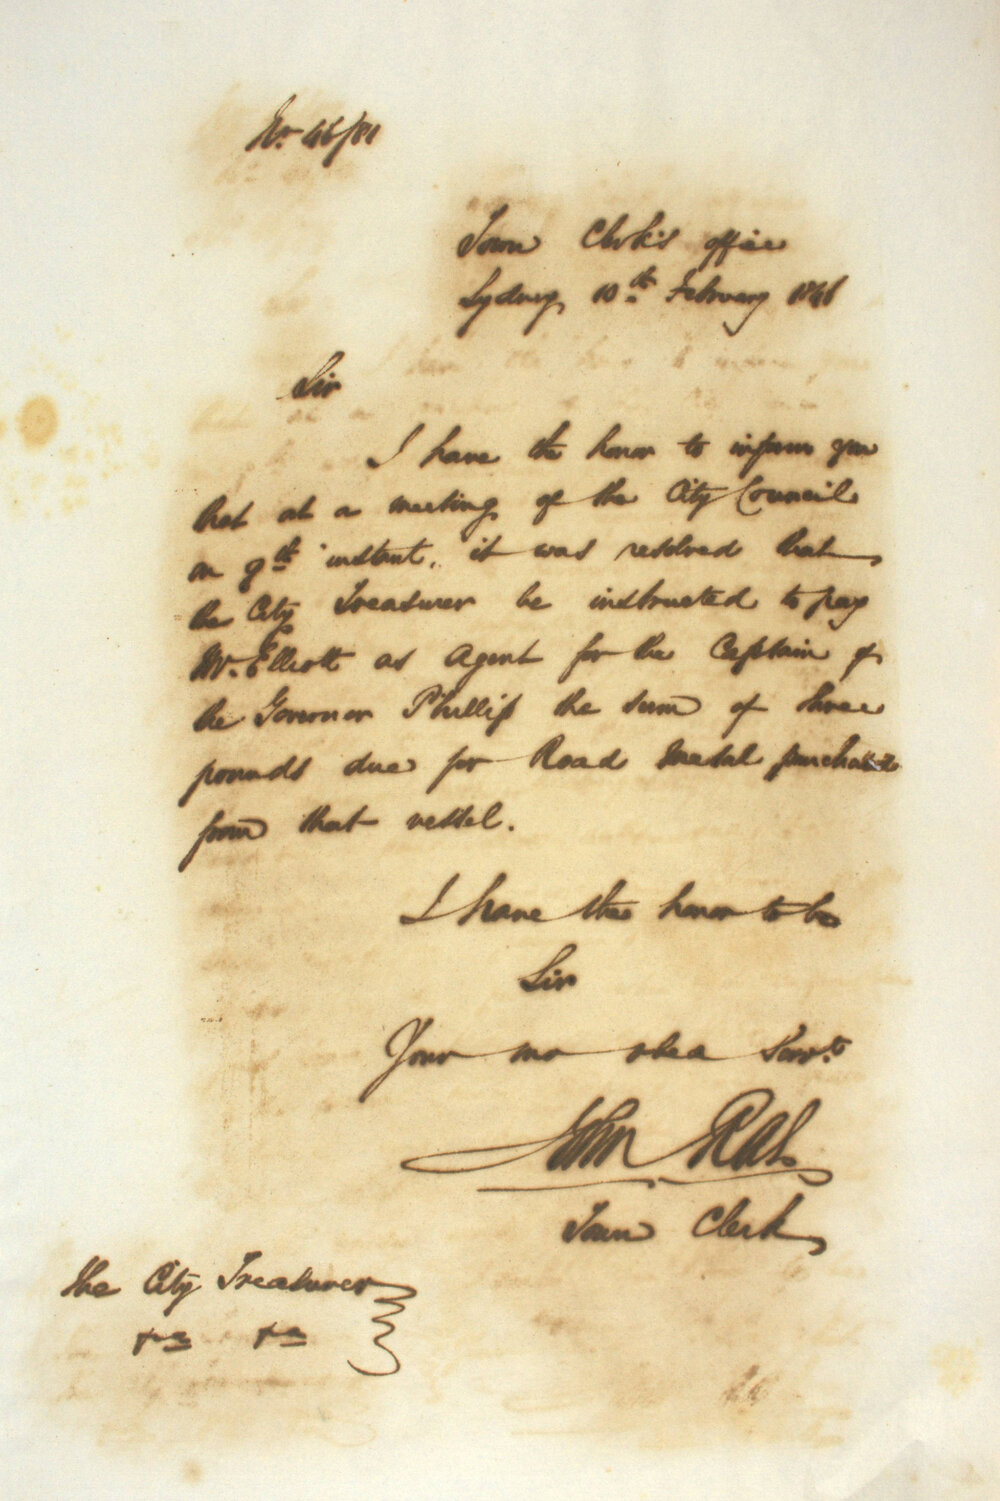 No 46/81
Town Clerk's office
Sydney 10th February 1846
Sir
I have the honor to inform you
that at a meeting of the City Council
on 9th instant, it was resolved that
the City Treasurer be instructed to pay
Mr. Elliott as Agent for the Captain of
the Governor Phillip the sum of three
pounds due for Road metal purchased
from that vessel.
I have the honor to be
Sir
Your mo obed Servt.
John Rae
Town Clerk
The City Treasurer